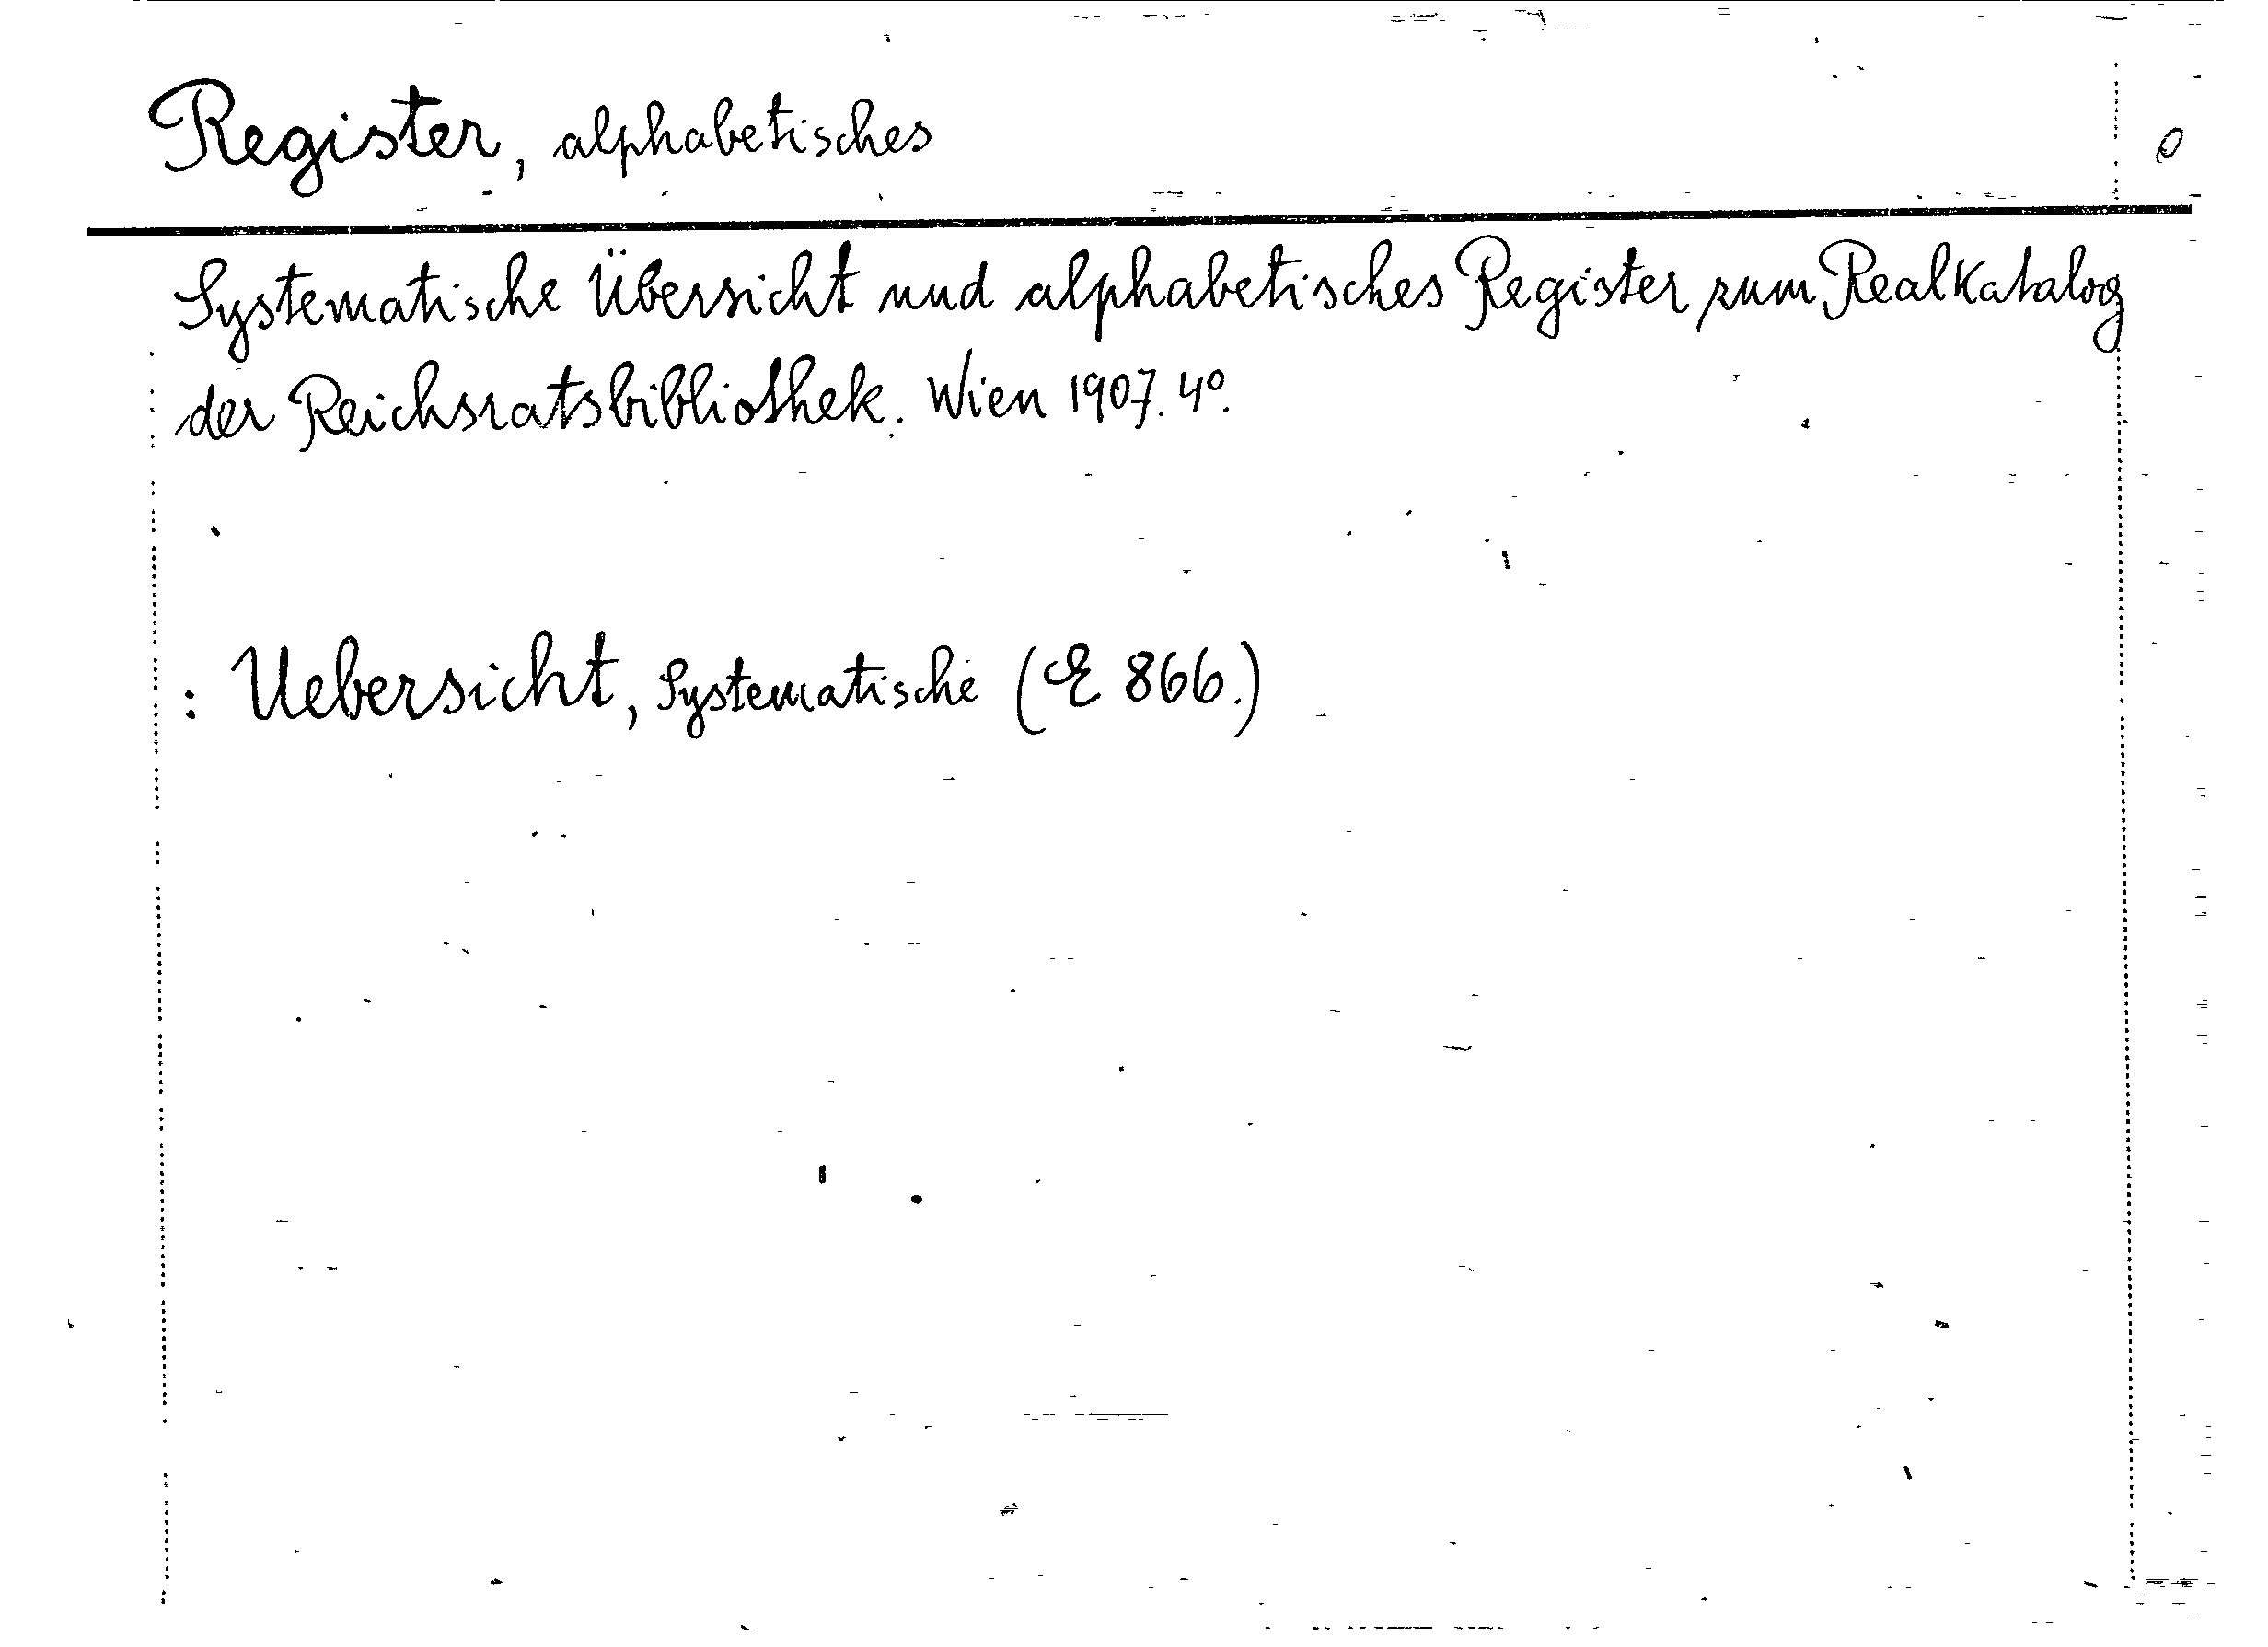 Register, alphabetisches
Systematische Übersicht und alphabetisches Register zum Realkatalog
der Reichsratsbibliothek. Wien 1907. 4°.
: Uebersicht, Systematische (E 866.)